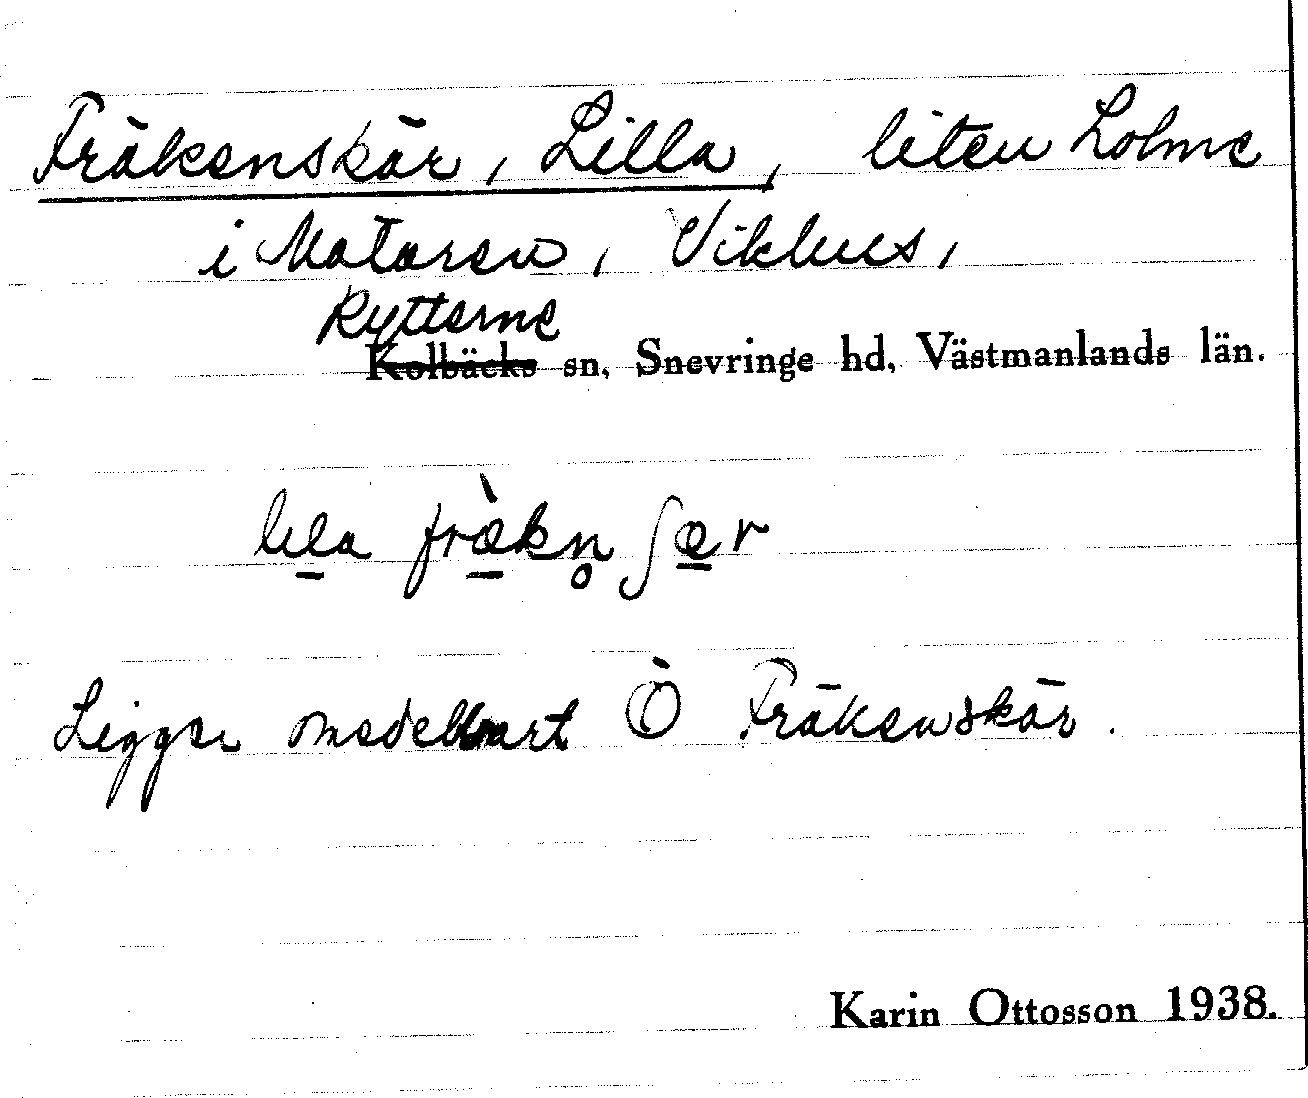 Fräkenskär, Lilla, liten holme
i Mälaren, Vikhus,
Rytterne
Kolbäcks sn, Snevringe hd, Västmanlands län.
lila frækn̥ ʃær
Ligger omedelbart Ö Fräkenskär.
Karin Ottosson 1938.